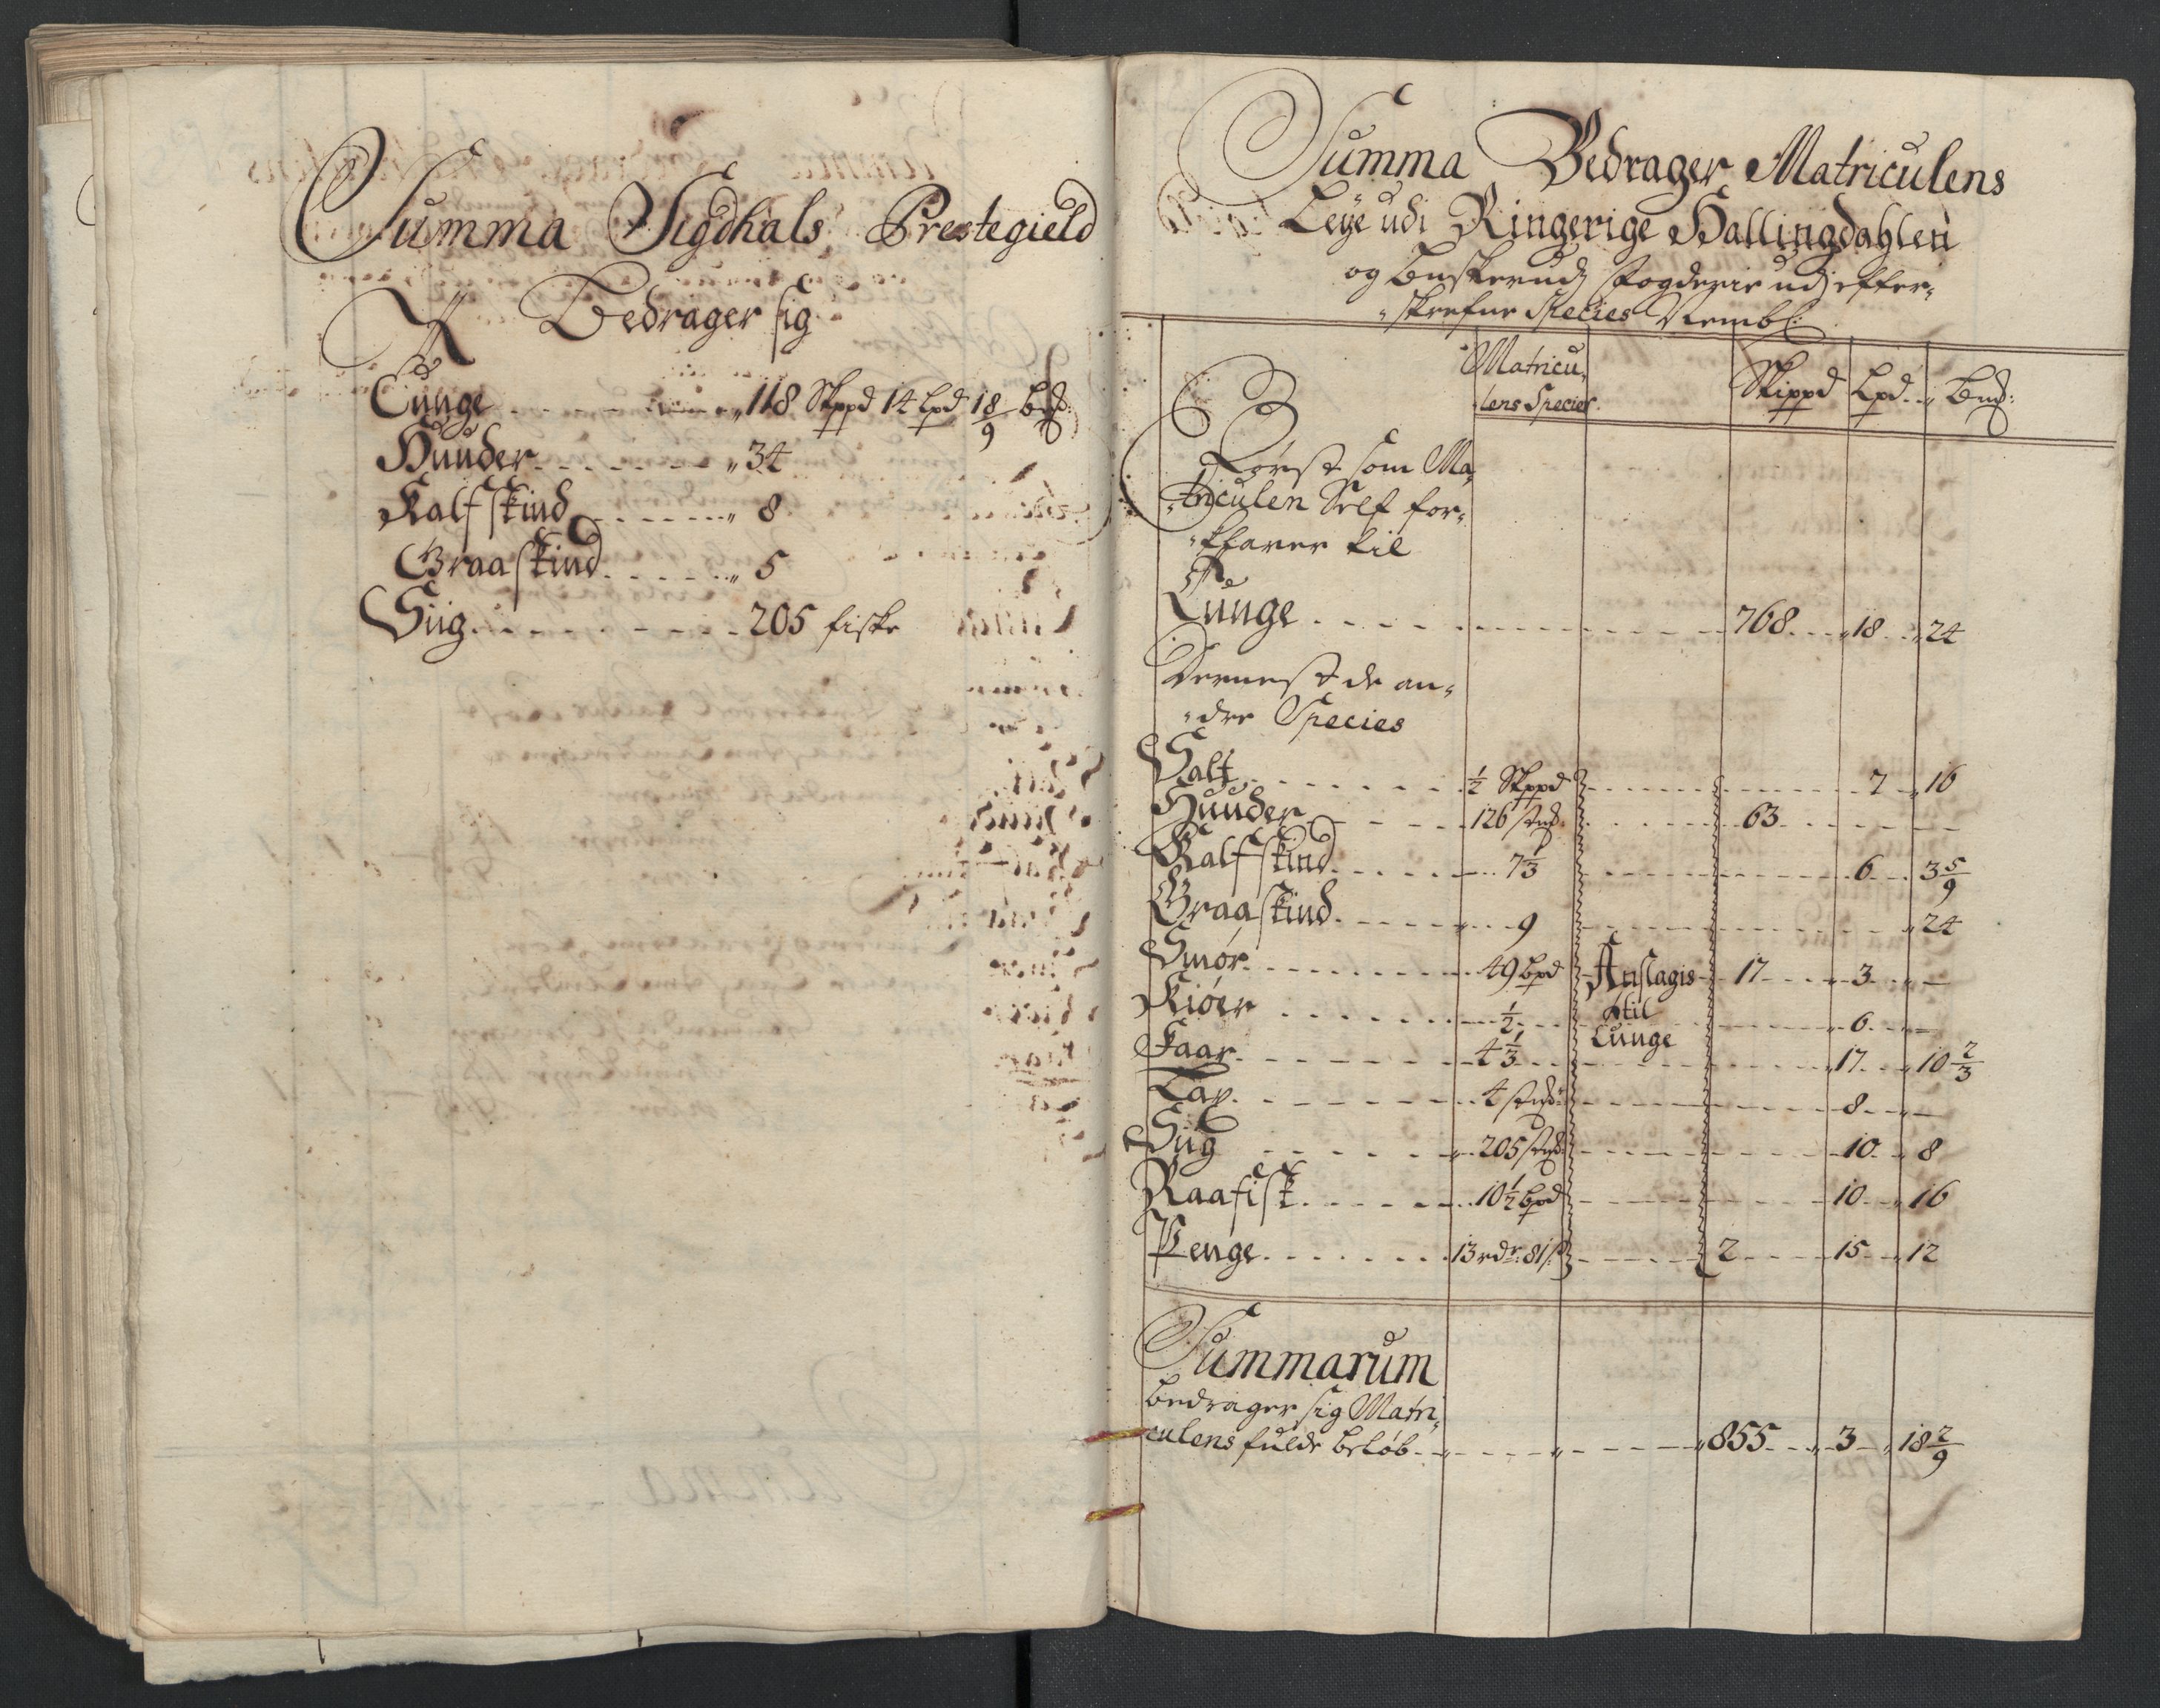 Summa Sigdhals Prestegield
Bedrager sig
Tunge 118 Skppd 14 Lpd 18/9 bmk:
Huuder 34
Kalfskind 8
Graaskind 5
Siig 205 fiske
Summa Bedrager Matriculens
Leÿe udi Ringerige Hallingdahlen
og Buskeruds fogderie udj efter„
„skrefne Species Nembl:
Matricu„
lens Species Skippd Lpd. Bmk:
Først som Ma„
„triculen Self for„
„klarer til
Tunge 768 18 24
Dernest de an„
„dre Species
Salt ½ Skppd 7 16
Huuder 126 stk: 63
Kalfskind 7⅓ 6 3 5/9
Graaskind 9 24
Smør 49 bpd Anslagis 17 3
til
Kiøer ½ 6
Tunge
Faar 4⅓ 17 10⅔
Tap 4 stk: 8
Siig 205 stk: 10 8
Raafisk 10½ bpd 10 16
Penge 13 rdr: 81 s: 2 15 12
Summarum
bedrager sig Matri„
culens fulde beløb 855 3 18 2/9